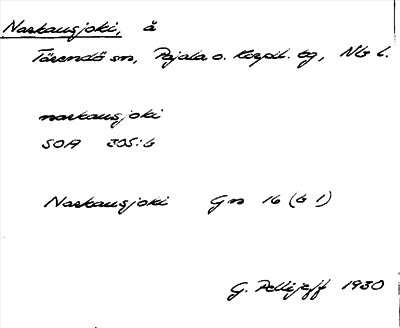 Narkausjoki, å
Tärendö sn, Pajala o. Korpil. tg, Nb l.
narkausjoki
SOA 305:6
Narkausjoki Gn 16 (b 1)
G. Pellijeff 1980